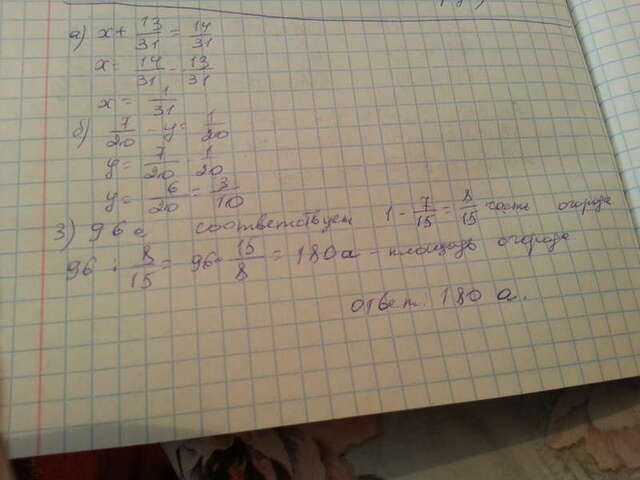 а) x + 13/31 = 14/31
x = 14/31 - 13/31
x = 1/31
б) 7/20 - y = 1/20
y = 7/20 - 1/20
y = 6/20 = 3/10
3) 96 а соответствует 1 - 7/15 = 8/15 части огорода
96 : 8/15 = 96 · 15/8 = 180 а - площадь огорода
ответ. 180 а.